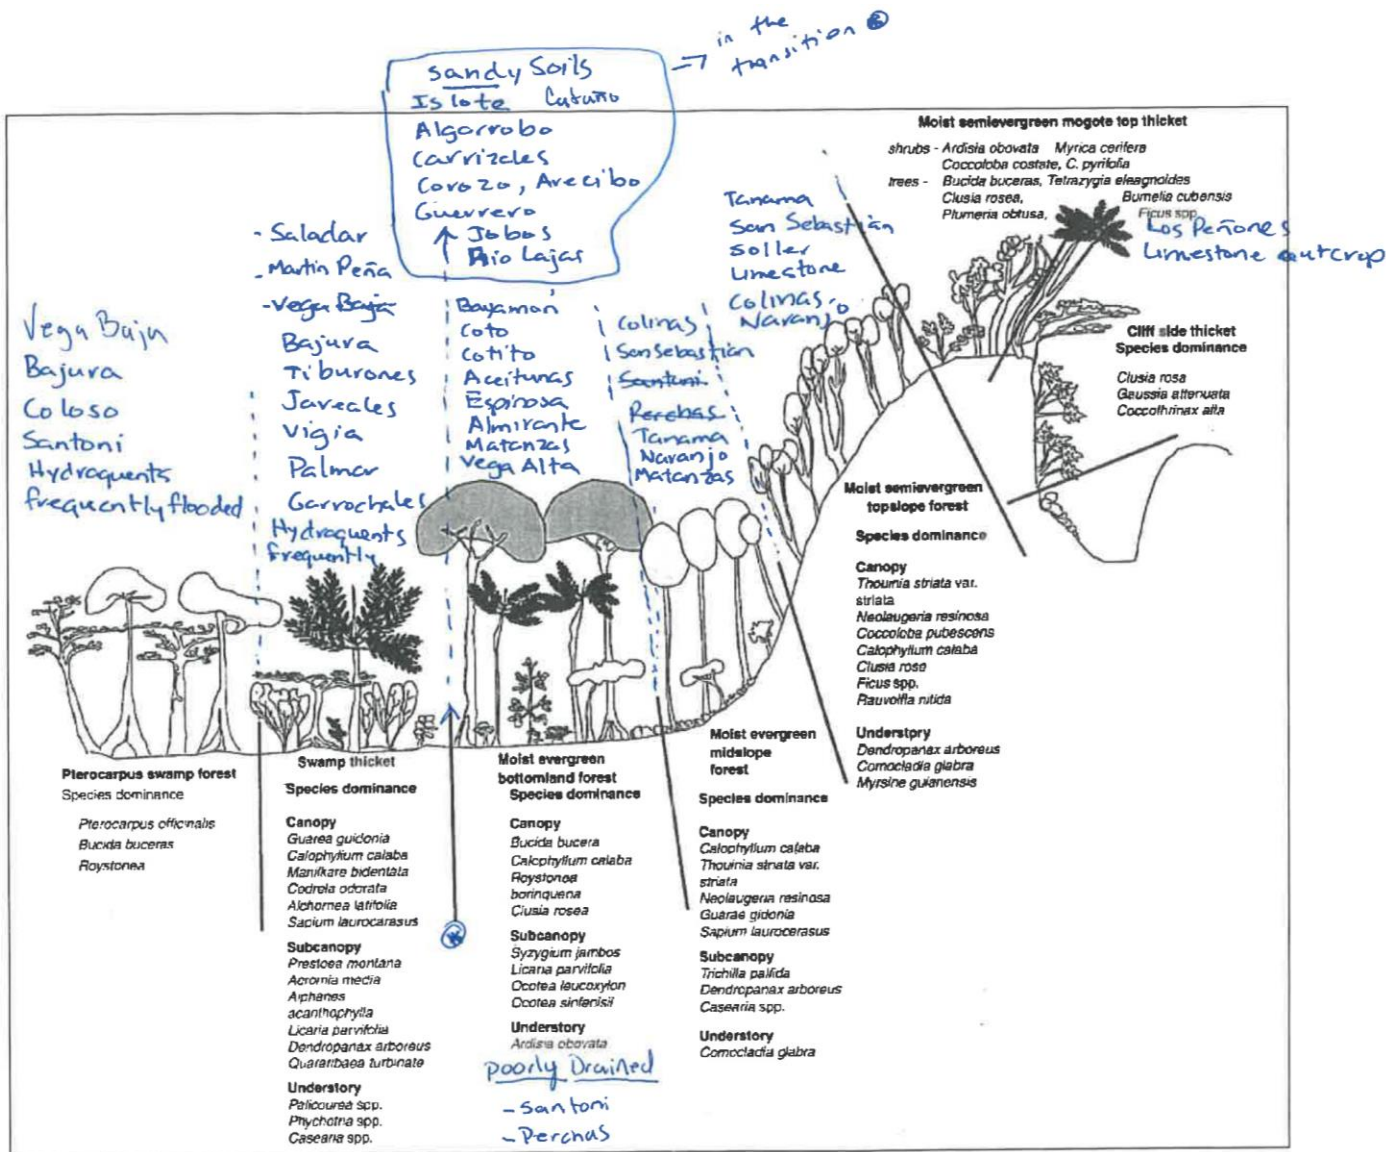 in the
transition
Sandy Soils
Islote Cataño
Algarrobo
Carrizales
Corozo, Arecibo
Guerrero
Jobos
Rio Lajas
Vega Baja
Bajura
Coloso
Santoni
Hydraquents
frequently flooded
- Saladar
- Martin Peña
- Vega Baja
Bajura
Tiburones
Jareales
Vigia
Palmar
Garrochales
Hydraquents
frequently
Bayamon
Coto
Cotito
Aceitunas
Espinosa
Almirante
Matanzas
Vega Alta
Colinas
San Sebastián
Santoni
Perchas
Tanama
Naranjo
Matanzas
Tanama
San Sebastián
Soller
Limestone
Colinas,
Naranjo
Moist semievergreen mogote top thicket
shrubs - Ardisia obovata Myrica cerifera
Coccoloba costate, C. pyrifolia
trees - Bucida buceras, Tetrazygia eleagnoides
Clusia rosea, Bumelia cubensis
Plumeria obtusa, Ficus spp.
Los Peñones
Limestone outcrop
Cliff side thicket
Species dominance
Clusia rosa
Gaussia attenuata
Coccothrinax alta
Moist semievergreen
topslope forest
Species dominance
Canopy
Thouinia striata var.
striata
Neolaugeria resinosa
Coccoloba pubescens
Calophyllum calaba
Clusia rose
Ficus spp.
Rauvolfia nitida
Understory
Dendropanax arboreus
Comocladia glabra
Myrsine guianensis
Pterocarpus swamp forest
Species dominance
Pterocarpus officinalis
Bucida buceras
Roystonea
Swamp thicket
Species dominance
Canopy
Guarea guidonia
Calophyllum calaba
Manilkare bidentata
Codrela odorata
Alchornea latifolia
Sapium laurocarasus
Subcanopy
Prestoea montana
Acromia media
Aiphanes
acanthophylla
Licaria parvifolia
Dendropanax arboreus
Quararibaea turbinate
Understory
Palicourea spp.
Phychotria spp.
Casearia spp.
Moist evergreen
bottomland forest
Species dominance
Canopy
Bucida bucera
Calophyllum calaba
Roystonea
borinquena
Clusia rosea
Subcanopy
Syzygium jambos
Licaria parvifolia
Ocotea leucoxylon
Ocotea sintenisii
Understory
Ardisia obovata
poorly Drained
- Santoni
- Perchas
Moist evergreen
midslope
forest
Species dominance
Canopy
Calophyllum calaba
Thouinia striata var.
striata
Neolaugeria resinosa
Guarae gidonia
Sapium laurocerasus
Subcanopy
Trichilla pallida
Dendropanax arboreus
Casearia spp.
Understory
Comocladia glabra